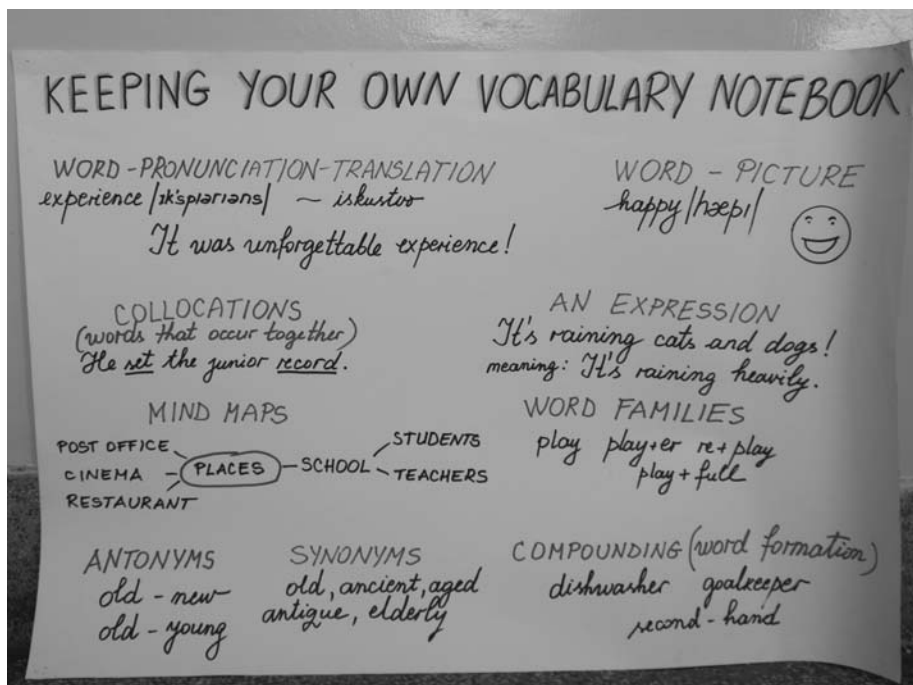 KEEPING YOUR OWN VOCABULARY NOTEBOOK
WORD-PRONUNCIATION-TRANSLATION
experience /ɪk'spɪərɪəns/ ~ iskustvo
It was unforgettable experience!
WORD - PICTURE
happy /hæpɪ/
COLLOCATIONS
(words that occur together)
He set the junior record.
AN EXPRESSION
It's raining cats and dogs!
meaning: It's raining heavily.
MIND MAPS
POST OFFICE
CINEMA
RESTAURANT
PLACES
SCHOOL
STUDENTS
TEACHERS
WORD FAMILIES
play play+er re+play
play+full
ANTONYMS
old - new
old - young
SYNONYMS
old, ancient, aged
antique, elderly
COMPOUNDING (word formation)
dishwasher goalkeeper
second-hand